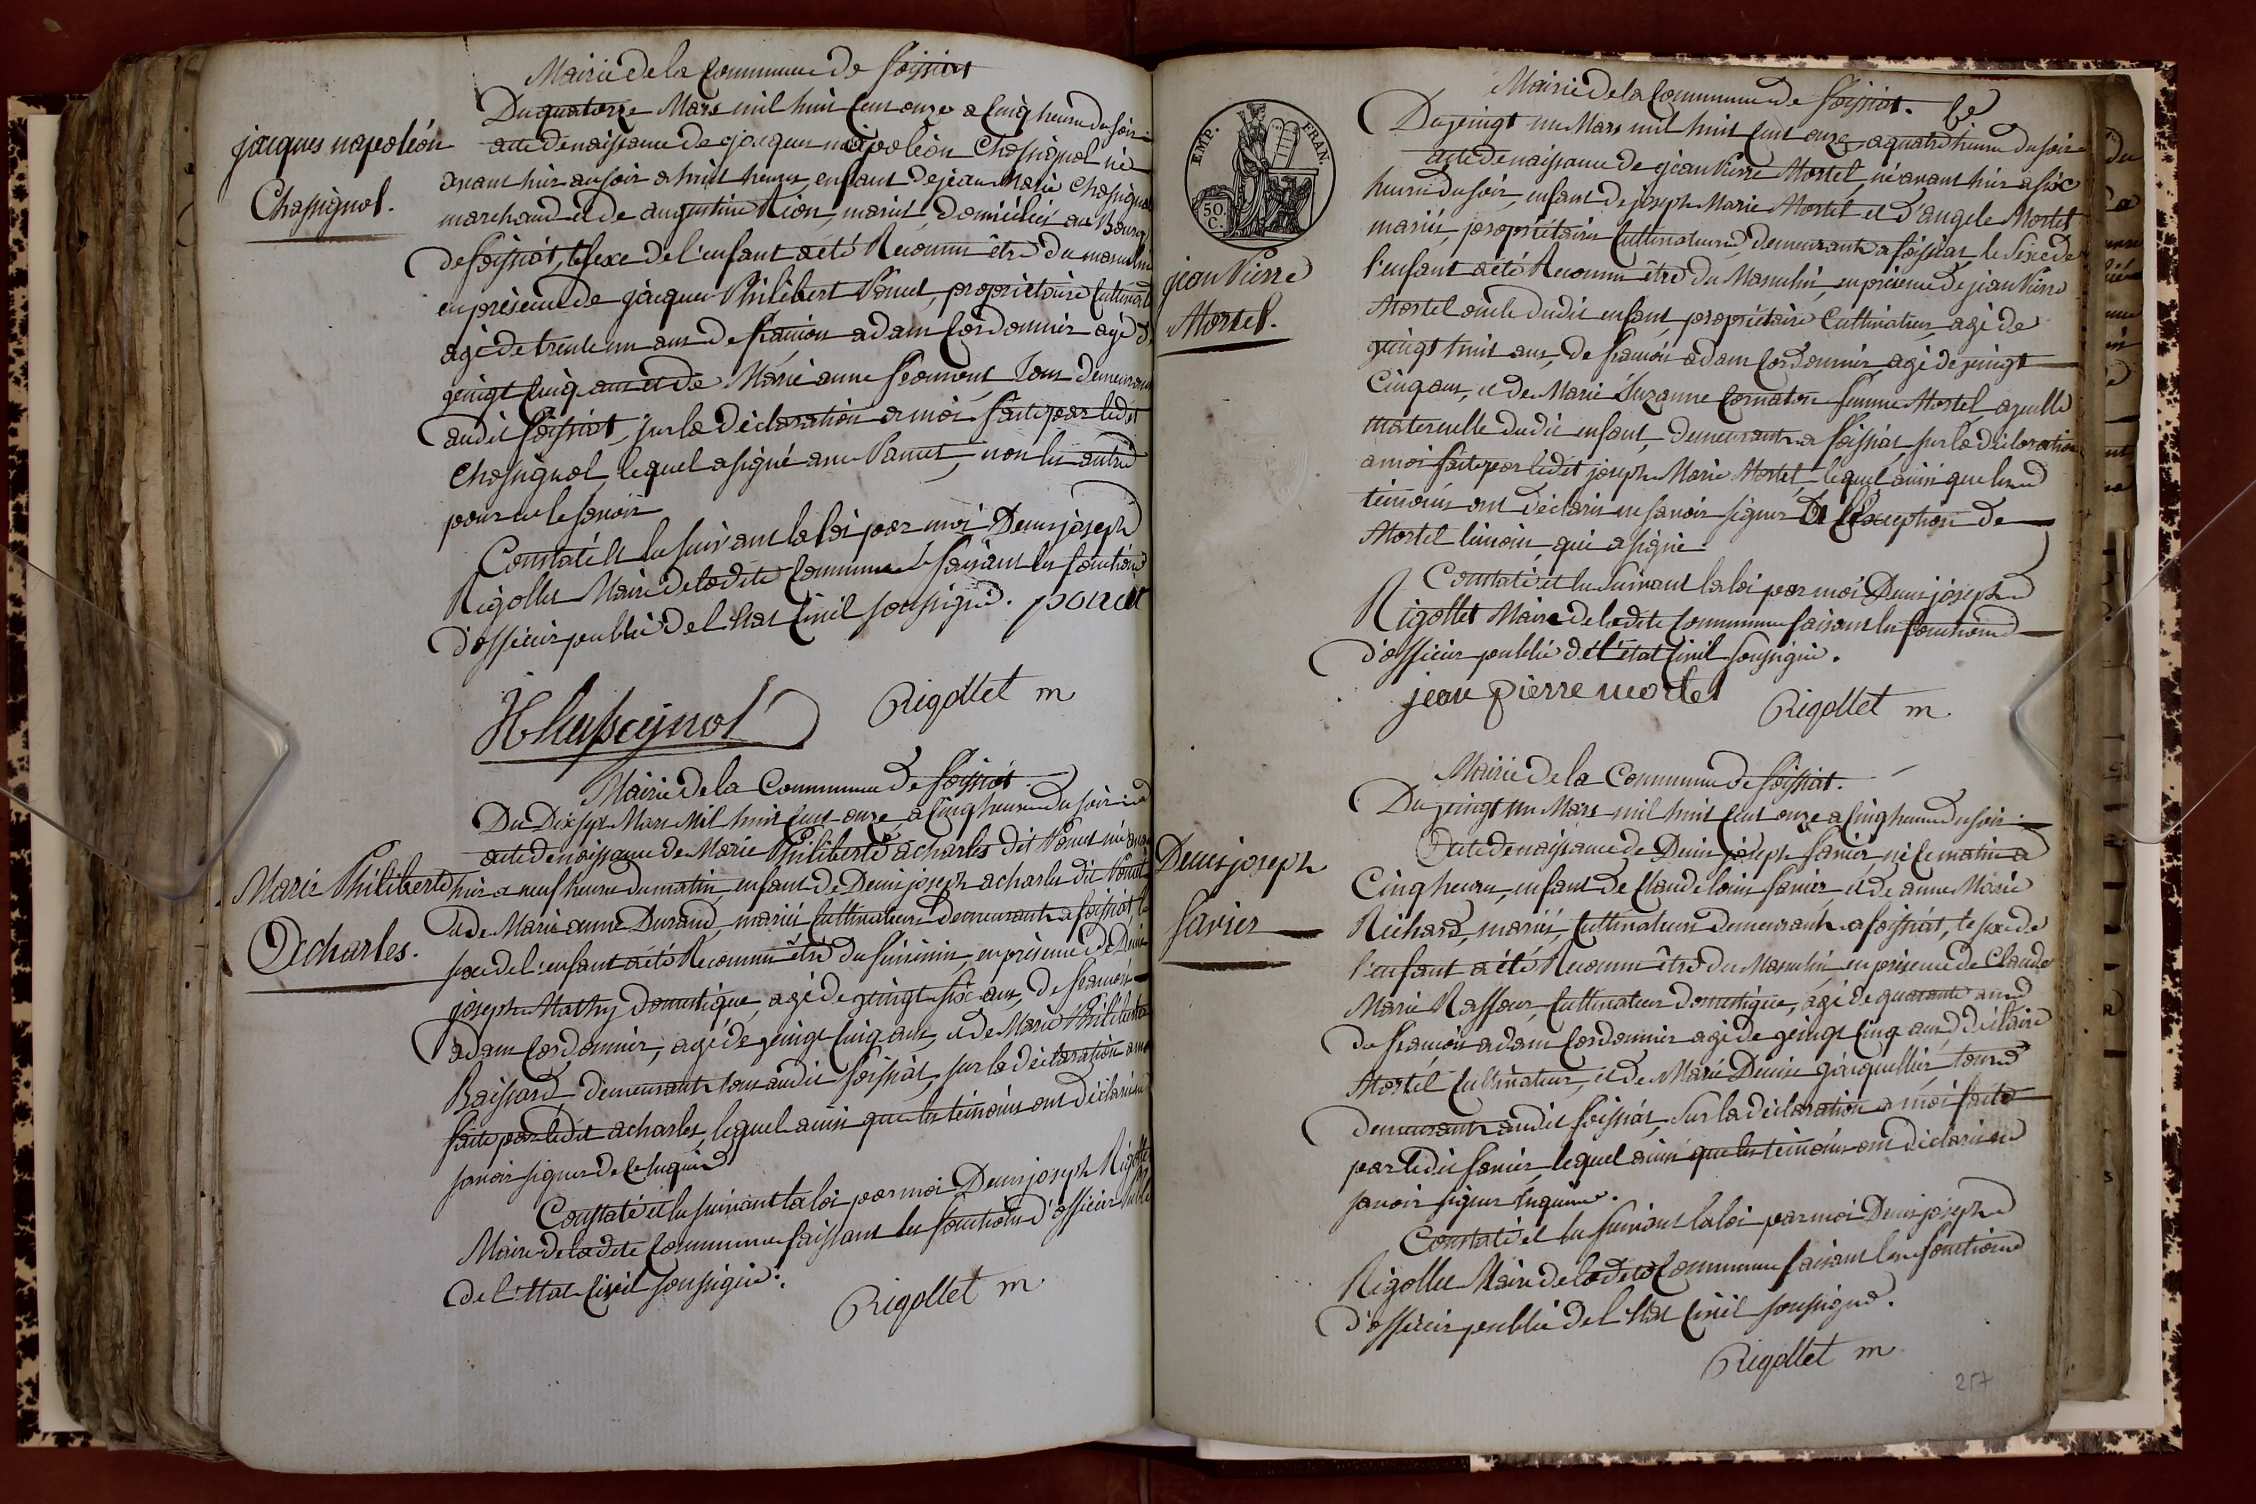 Mairie de la Commune de foissiat
Du quatorze Mars mil huit Cent onze a Cinq heure du soir
acte de naissance de jacques napoléon Chassignol né
avant hier au soir a huit heures, enfant de jean Marie Chassignol
marchand et de augustine Rion, mariés, domiciliés au Bourg
de foissiat, le sexe de l'enfant a été Reconnu être du masculin
en présence de jacques Philibert Panut, propriétaire Cultivat
agé de trente un ans de francois adam Cordonnier agé de
veingt Cinq ans et de Marie anne tous demeurant
audit foissiat, sur la déclaration a moi faite par ledit
Chassignol lequel a signé avec Panut, non les autres
pour ne le savoir
Constaté et lu suivant la loi par moi Denis joseph
Rigollet Maire de ladite Commune faisant les fonctions
d'officier public de l'Etat Civil soussigné. panut
Chassignol
Rigollet m
jacques napoléon
Chassignol.
Mairie de la Commune de foissiat
Du Dix sept Mars Mil huit Cent onze a Cinq heure du soir
acte de naissance de Marie Philiberte acharles dit Panut née avant
hier a neuf heure du matin, enfant de Denis joseph acharles dit Panut
et de Marie anne Durand, mariés Cultivateurs demeurants a foissiat, le
sexe de l'enfant a été Reconnu être du féminin, en présence de Denis
joseph Mathy Domestique, agé de veingt six ans, de francois
adam Cordonnier, agé de veingt Cinq ans, et de Marie Philiberte
demeurants tous audit foissiat, sur la déclaration a moi
faite par ledit acharles, lequel ainsi que les témoins ont déclaré ne
savoir signer de ce Requis
Constaté et lu suivant la loi par moi Denis joseph Rigollet
Maire de ladite Commune faissant les fonctions d'officier public
de l'Etat Civil soussigné.
Rigollet m
Marie Philiberte
Acharles.
EMP. FRAN.
50. C.
jean Pierre
Mortel.
Mairie de la Commune de foissiat.
Du veingt un Mars mil huit Cent onze a quatre heure du soir
acte de naissance de jean Pierre Mortel, né avant hier a six
heures du soir, enfant de joseph Marie Mortel et d'angele Mortel
mariés, propriétaires Cultivateurs, demeurants a foissiat, le sexe de
l'enfant a été Reconnu être du Masculin, en présence de jean Pierre
Mortel oncle dudit enfant, propriétaire Cultivateur, agé de
veingt huit ans, de francois adam Cordonnier agé de veingt
Cinq ans, et de Marie Suzanne Cornaton femme Mortel ayeulle
maternelle dudit enfant, demeurants a foissiat, sur la déclaration
a moi faite par ledit joseph Marie Mortel, lequel ainsi que les
témoins ont déclaré ne savoir signer a l'exception de
Mortel témoin qui a signé.
Constaté et lu suivant la loi par moi Denis joseph
Rigollet Maire de ladite Commune faisant les fonctions
d'officier public de l'état Civil soussigné.
jean pierre mortel
Rigollet m
Mairie de la Commune de foissiat.
Du veingt un Mars mil huit Cent onze a Cinq heure du soir
Acte de naissance de Denis joseph favier né ce matin a
Cinq heures, enfant de Claude louis favier, et de anne Marie
Richard, mariés, Cultivateurs demeurants a foissiat, le sexe de
l'enfant a été Reconnu être du Masculin en présence de Claude
Marie Raffour, Cultivateur domestique, agé de quarante ans
de francois adam Cordonnier agé de veingt Cinq ans, d'hilaire
Mortel Cultivateur, et de Marie Denise tous
demeurants audit foissiat, sur la déclaration a moi faite
par ledit favier, lequel ainsi que les témoins ont déclaré ne
savoir signer Requis.
Constaté et lu suivant la loi par moi Denis joseph
Rigollet Maire de ladite Commune faisant les fonctions
d'officier public de l'Etat Civil soussigné.
Rigollet m
Denis joseph
favier
257